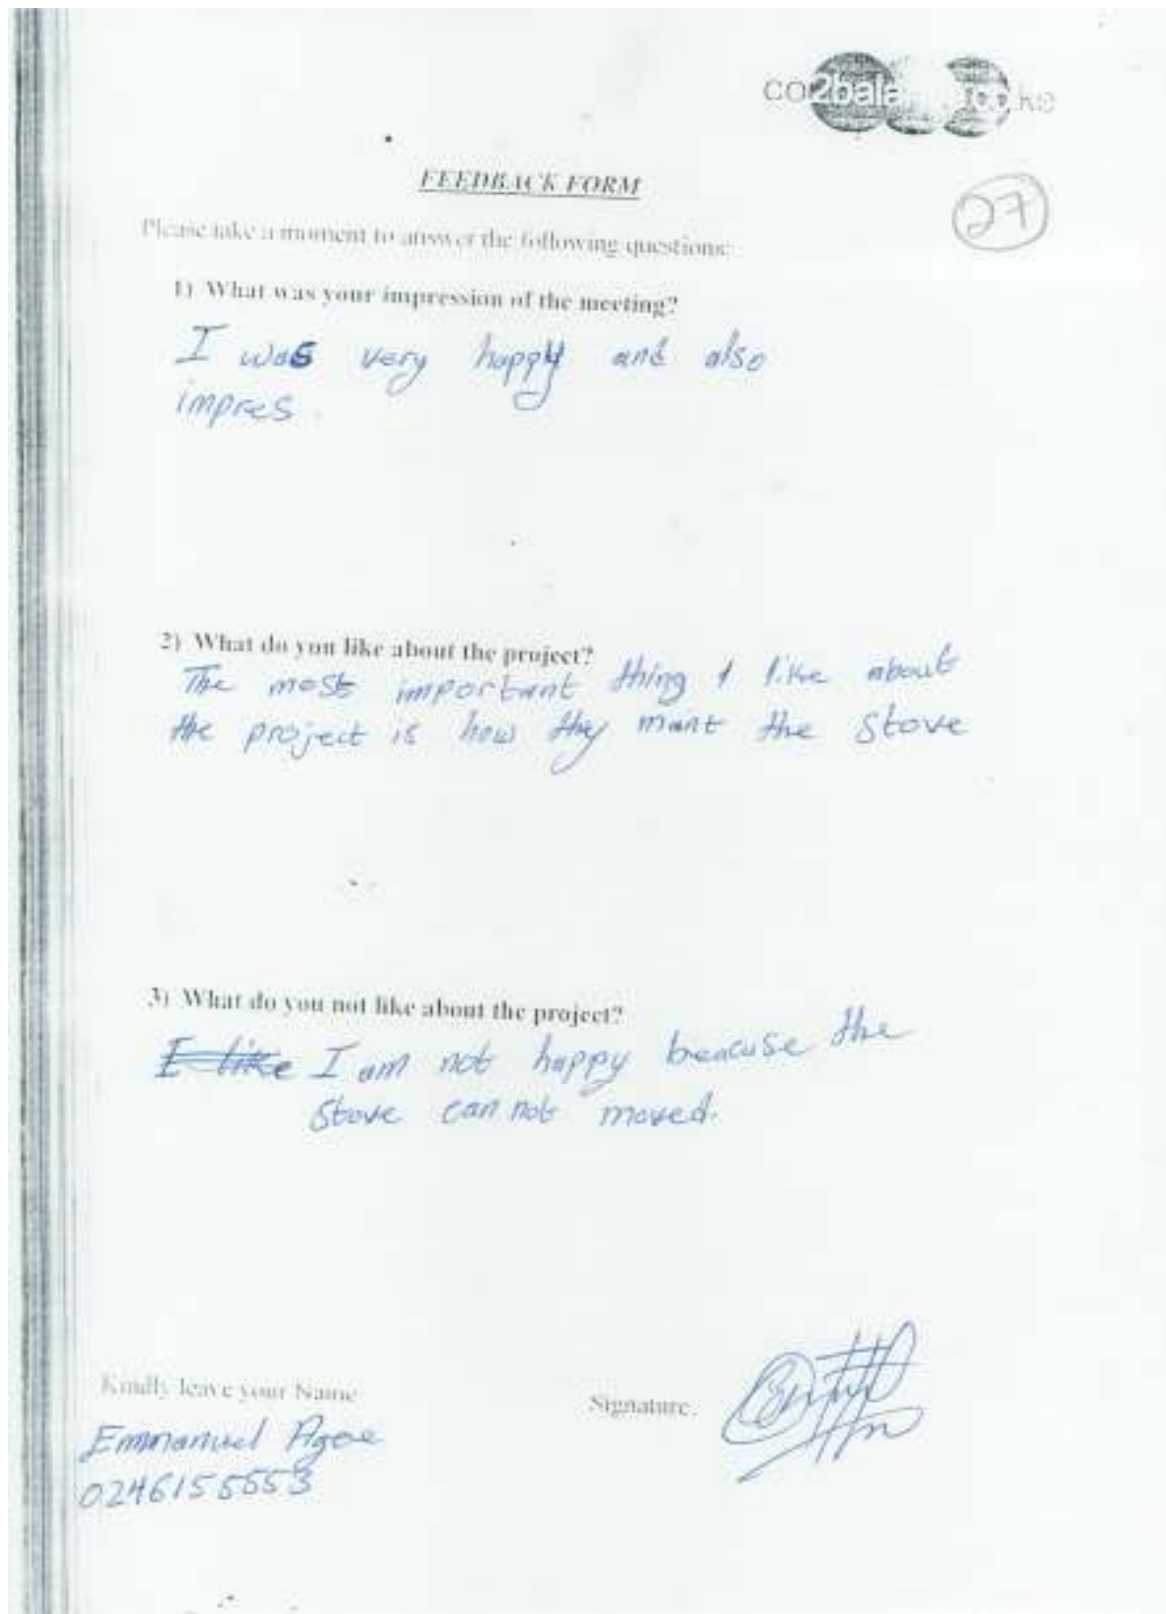 co2balance.co.ke
FEEDBACK FORM
27
Please take a moment to answer the following questions:
1) What was your impression of the meeting?
I was very happy and also
impres.
2) What do you like about the project?
The most important thing I like about
the project is how they mant the stove
3) What do you not like about the project?
I like I am not happy beacuse the
stove can not moved.
Kindly leave your Name
Signature.
Emmanuel Agoe